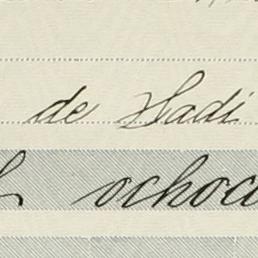 de Hadi
ochoc